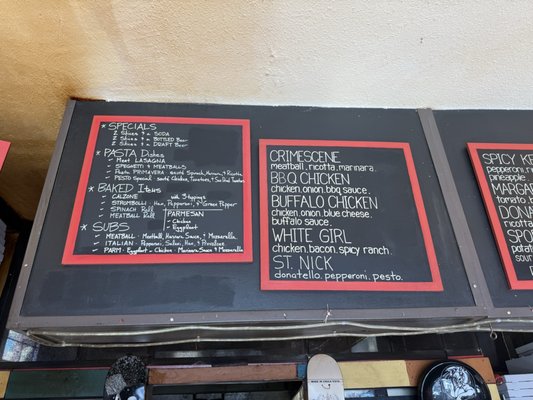 * SPECIALS
2 Slices & a SODA
2 Slices & a BOTTLED Beer
2 Slices & a DRAFT Beer
* PASTA Dishes
✓ Meat LASAGNA
✓ SPAGHETTI & MEATBALLS
✓ Pasta PRIMAVERA
✓ PESTO Special
* BAKED Items
✓ CALZONE with 3 toppings
✓ STROMBOLI - Ham, Pepperoni, & Green Pepper
✓ SPINACH Roll
✓ MEATBALL Roll
PARMESAN
✓ Chicken
✓ Eggplant
* SUBS
✓ MEATBALL - Meatballs, Marinara Sauce, & Mozzarella
✓ ITALIAN - Pepperoni, Salami, Ham, & Provolone
✓ PARM - Eggplant - Chicken Marinara Sauce & Mozzarella
CRIMESCENE
meatball. ricotta. marinara.
BBQ CHICKEN
chicken. onion. bbq sauce.
BUFFALO CHICKEN
chicken. onion. blue cheese.
buffalo sauce.
WHITE GIRL
chicken. bacon. spicy ranch.
ST. NICK
donatello. pepperoni. pesto.
SPICY
pepperoni
pineapple.
MARGA
tomato
DONA